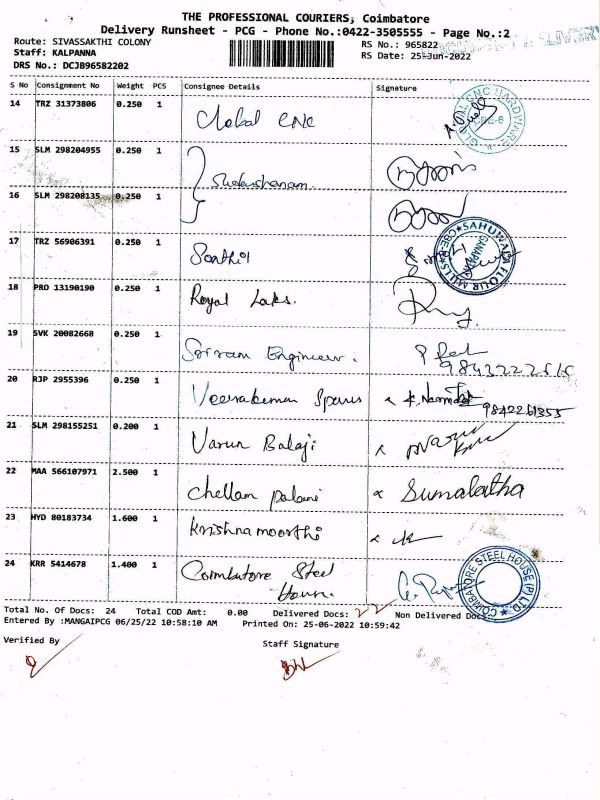 THE PROFESSIONAL COURIERS, Coimbatore
Delivery Runsheet - PCG - Phone No.:0422-3505555 - Page No.:2
Route: SIVASSAKTHI COLONY
RS No.: 965822
Staff: KALPANNA
RS Date: 25-Jun-2022
DRS No.: DCJB96582202
S No Consignment No Weight PCS Consignee Details Signature
14 TRZ 31373806 0.250 1 Global CNC
GLOBAL CNC HARDWARE CBE-6
15 SLM 298204955 0.250 1
Sudarshanam
16 SLM 298208135 0.250 1
17 TRZ 56906391 0.250 1 Senthil
SAHUWALA FLOUR MILLS CBE
GANAPATHY
18 PRO 13190190 0.250 1 Royal Labs.
19 SVK 20082668 0.250 1 Sriram Engineer.
20 RJP 2955396 0.250 1 Veerakumar Spares
9842261355
21 SLM 298155251 0.200 1 Varun Balaji
22 MAA 566107971 2.500 1 Chellam Palani Sumalatha
23 HYD 80183734 1.600 1 Krishnamoorthi
24 KRR 5414678 1.400 1 Coimbatore Steel
House.
COIMBATORE STEEL HOUSE (P) LTD
Total No. Of Docs: 24 Total COD Amt: 0.00 Delivered Docs: 22 Non Delivered Docs
Entered By :MANGAIPCG 06/25/22 10:58:10 AM Printed On: 25-06-2022 10:59:42
Verified By Staff Signature